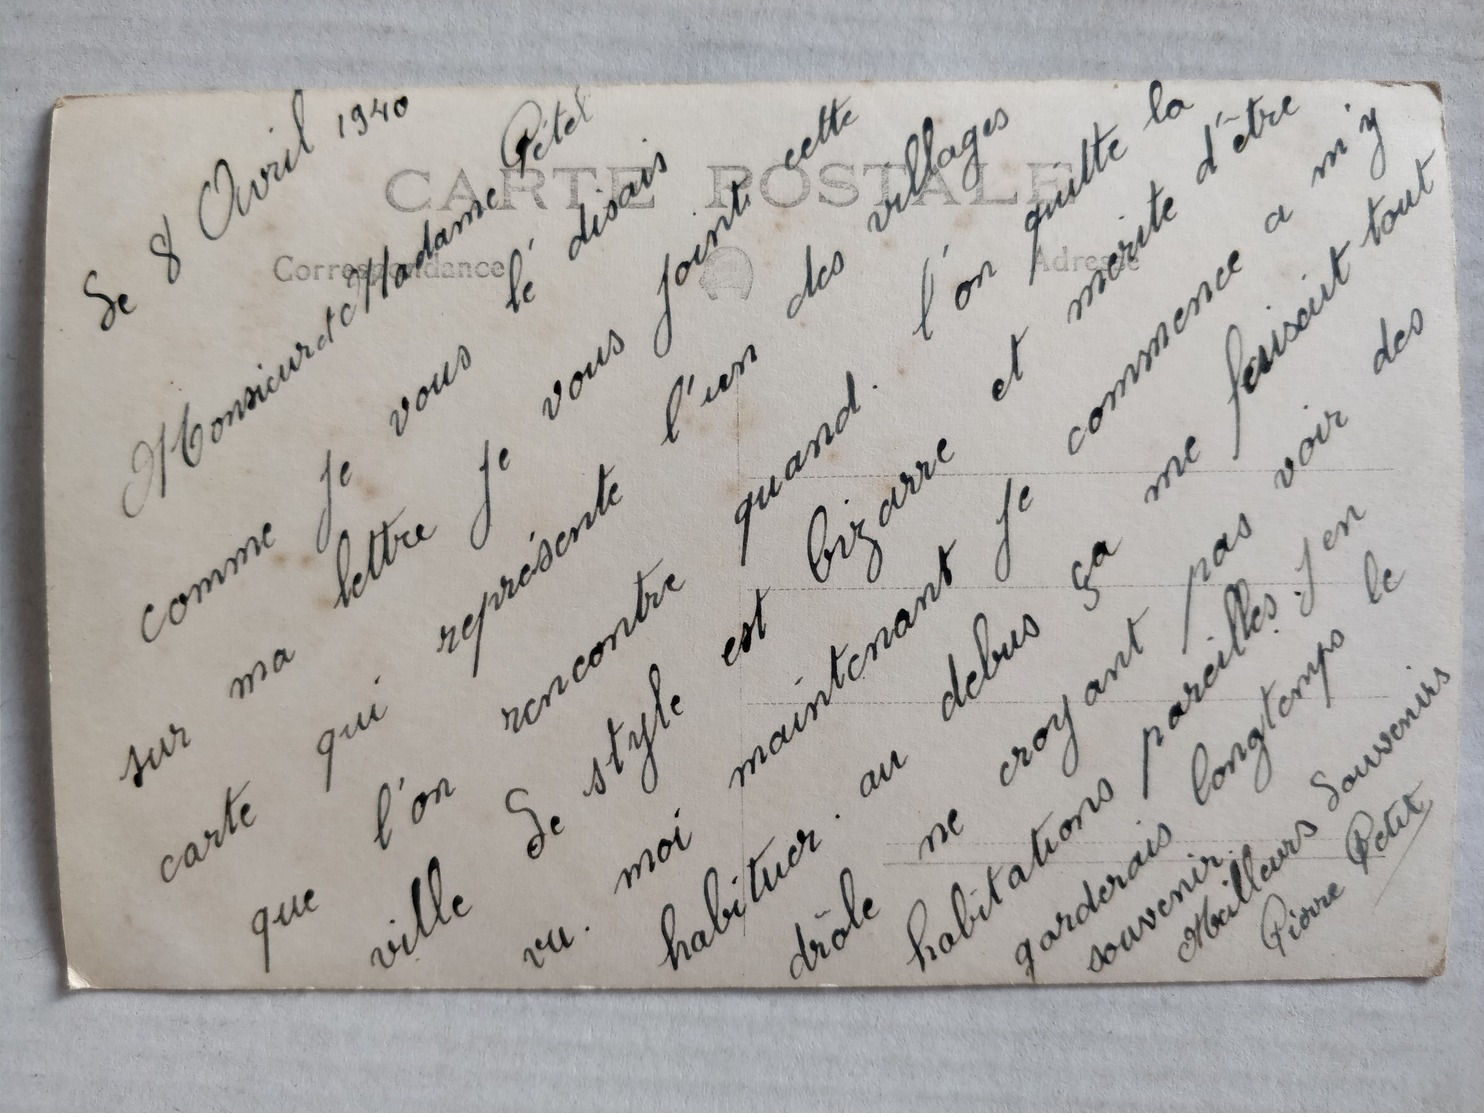 CARTE POSTALE
Correspondance
Adresse
Le 8 Avril 1940
Monsieur et Madame Pétel
comme je vous lé disais
sur ma lettre je vous joint cette
carte qui représente l'un des villages
que l'on rencontre quand. l'on quitte la
ville Le style est bizarre et merite d'être
vu. moi maintenant je commence a m'y
habituer. au debus ça me faisait tout
drôle ne croyant pas voir des
habitations pareilles. J en
garderais longtemps le
souvenir.
Meilleurs Souvenirs
Pierre Petit